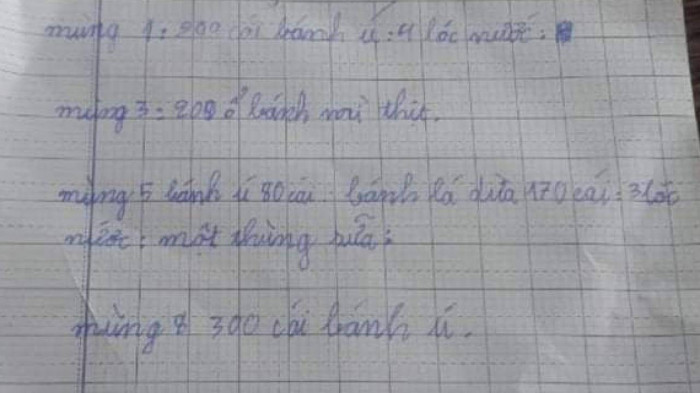 mùng 1: 200 cái bánh ú: 4 lóc nước:
mùng 3: 200 ổ bánh mì thịt.
mùng 5 bánh ú 80 cái. bánh lá dừa 170 cái: 3 lóc
nước: một thùng sữa:
mùng 8 300 cái bánh ú.